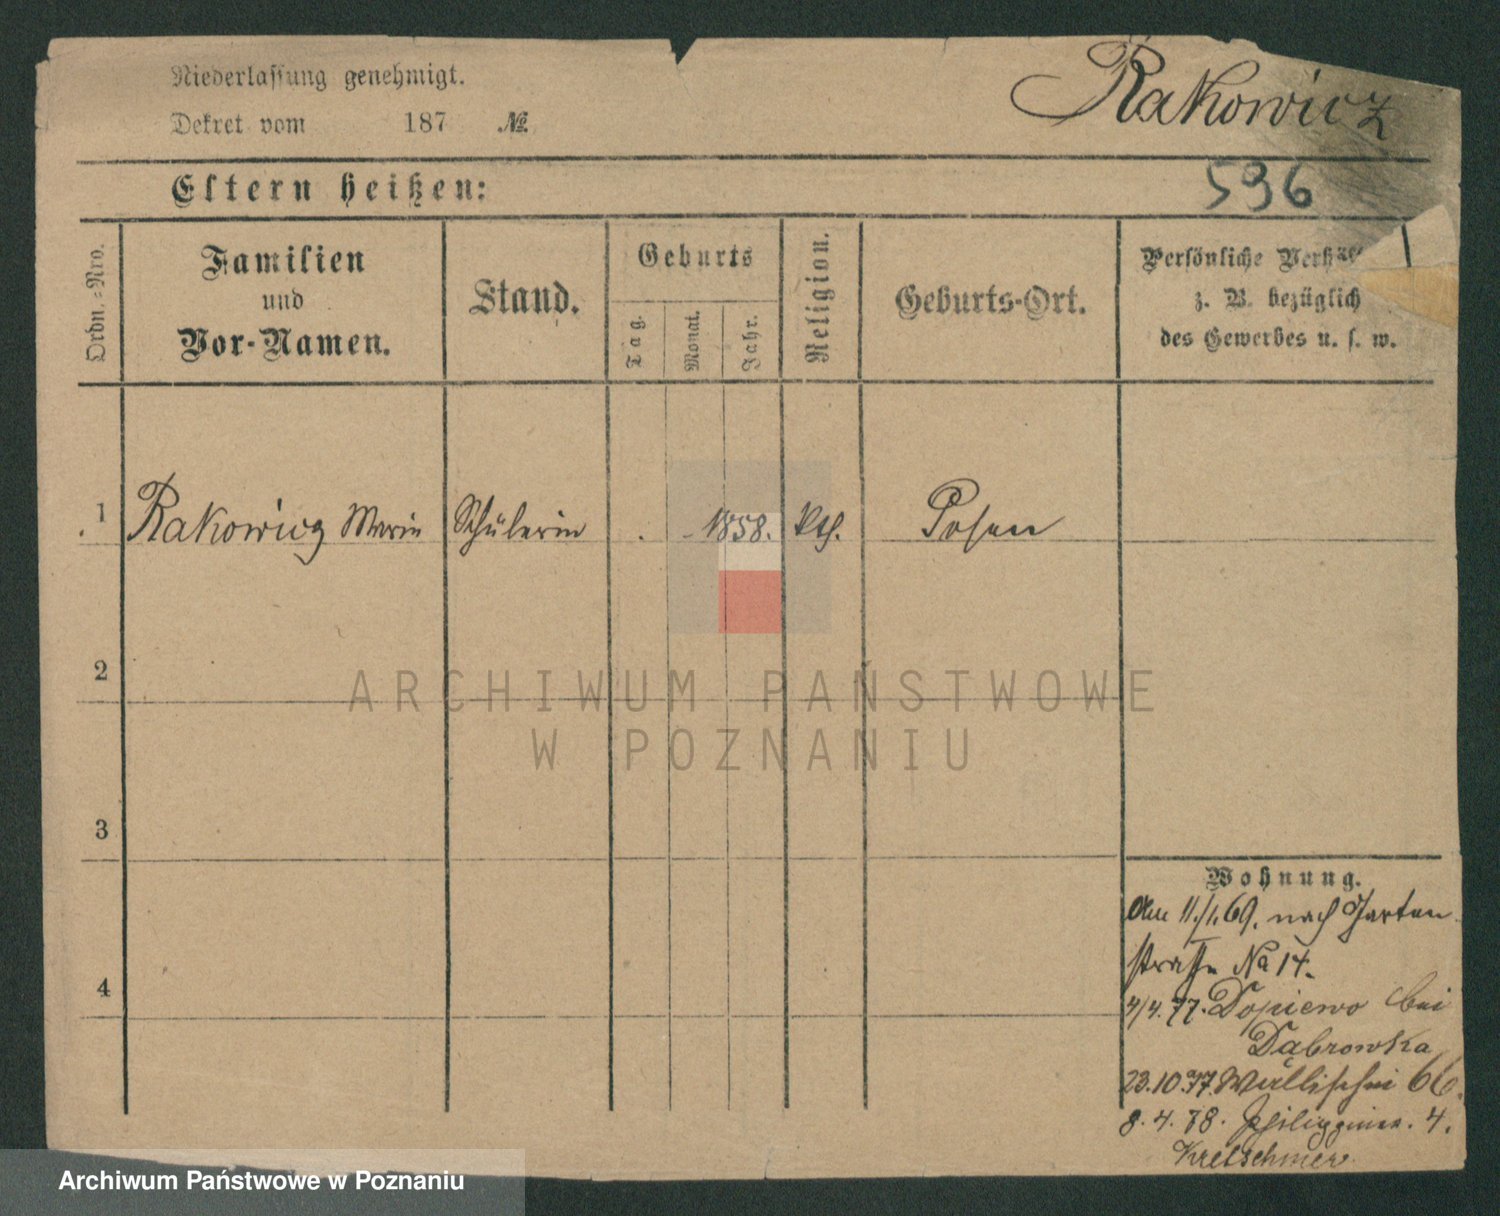 Niederlassung genehmigt.
Rakowicz
Dekret vom 187 №
596
Eltern heißen:
Ordn.-Nro.
Familien
und
Vor-Namen.
Stand.
Geburts
Tag.
Monat.
Jahr.
Religion.
Geburts-Ort.
Persönliche
z. B. bezüglich
des Gewerbes u. s. w.
1 Rakowicz Marie Schülerin . - 1858. kth. Posen
2
ARCHIWUM PAŃSTWOWE
W POZNANIU
3
Wohnung.
Am 11./1.69. nach Garten
strasse No 14.
4
4/4.77. Dopiewo bei
Dąbrowka
23.10.77. Wallischei 66.
8.4.78. 4.
Kretschmer.
Archiwum Państwowe w Poznaniu